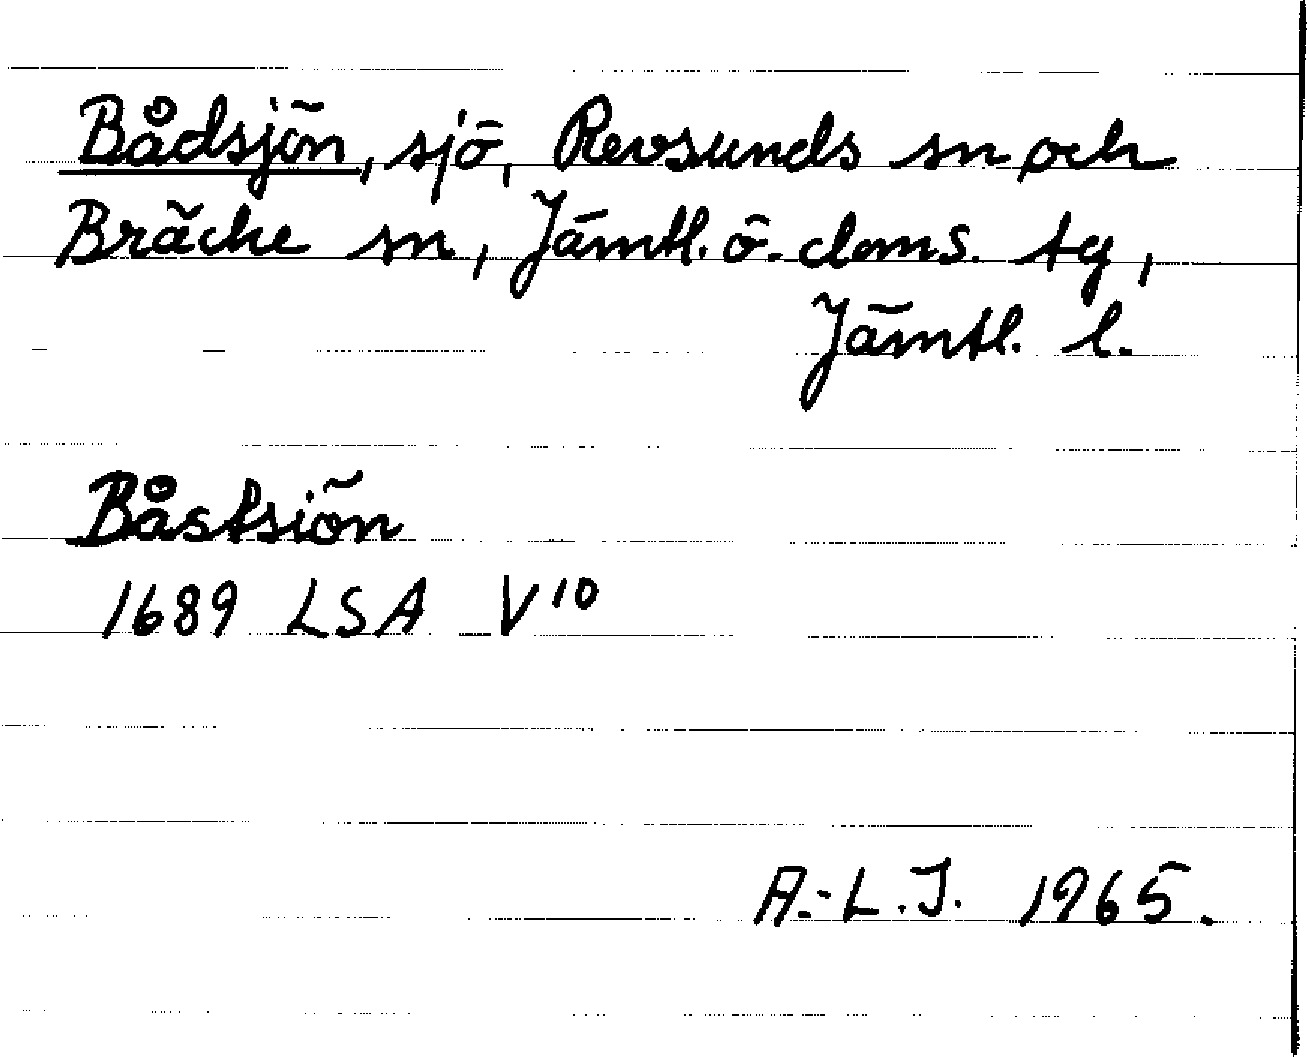 Bådsjön, sjö, Revsunds sn och
Bräcke sn, Jämtl. ö. doms. tg,
Jämtl. l.
Båstsiön
1689 LSA V10
A.-L.J. 1965.